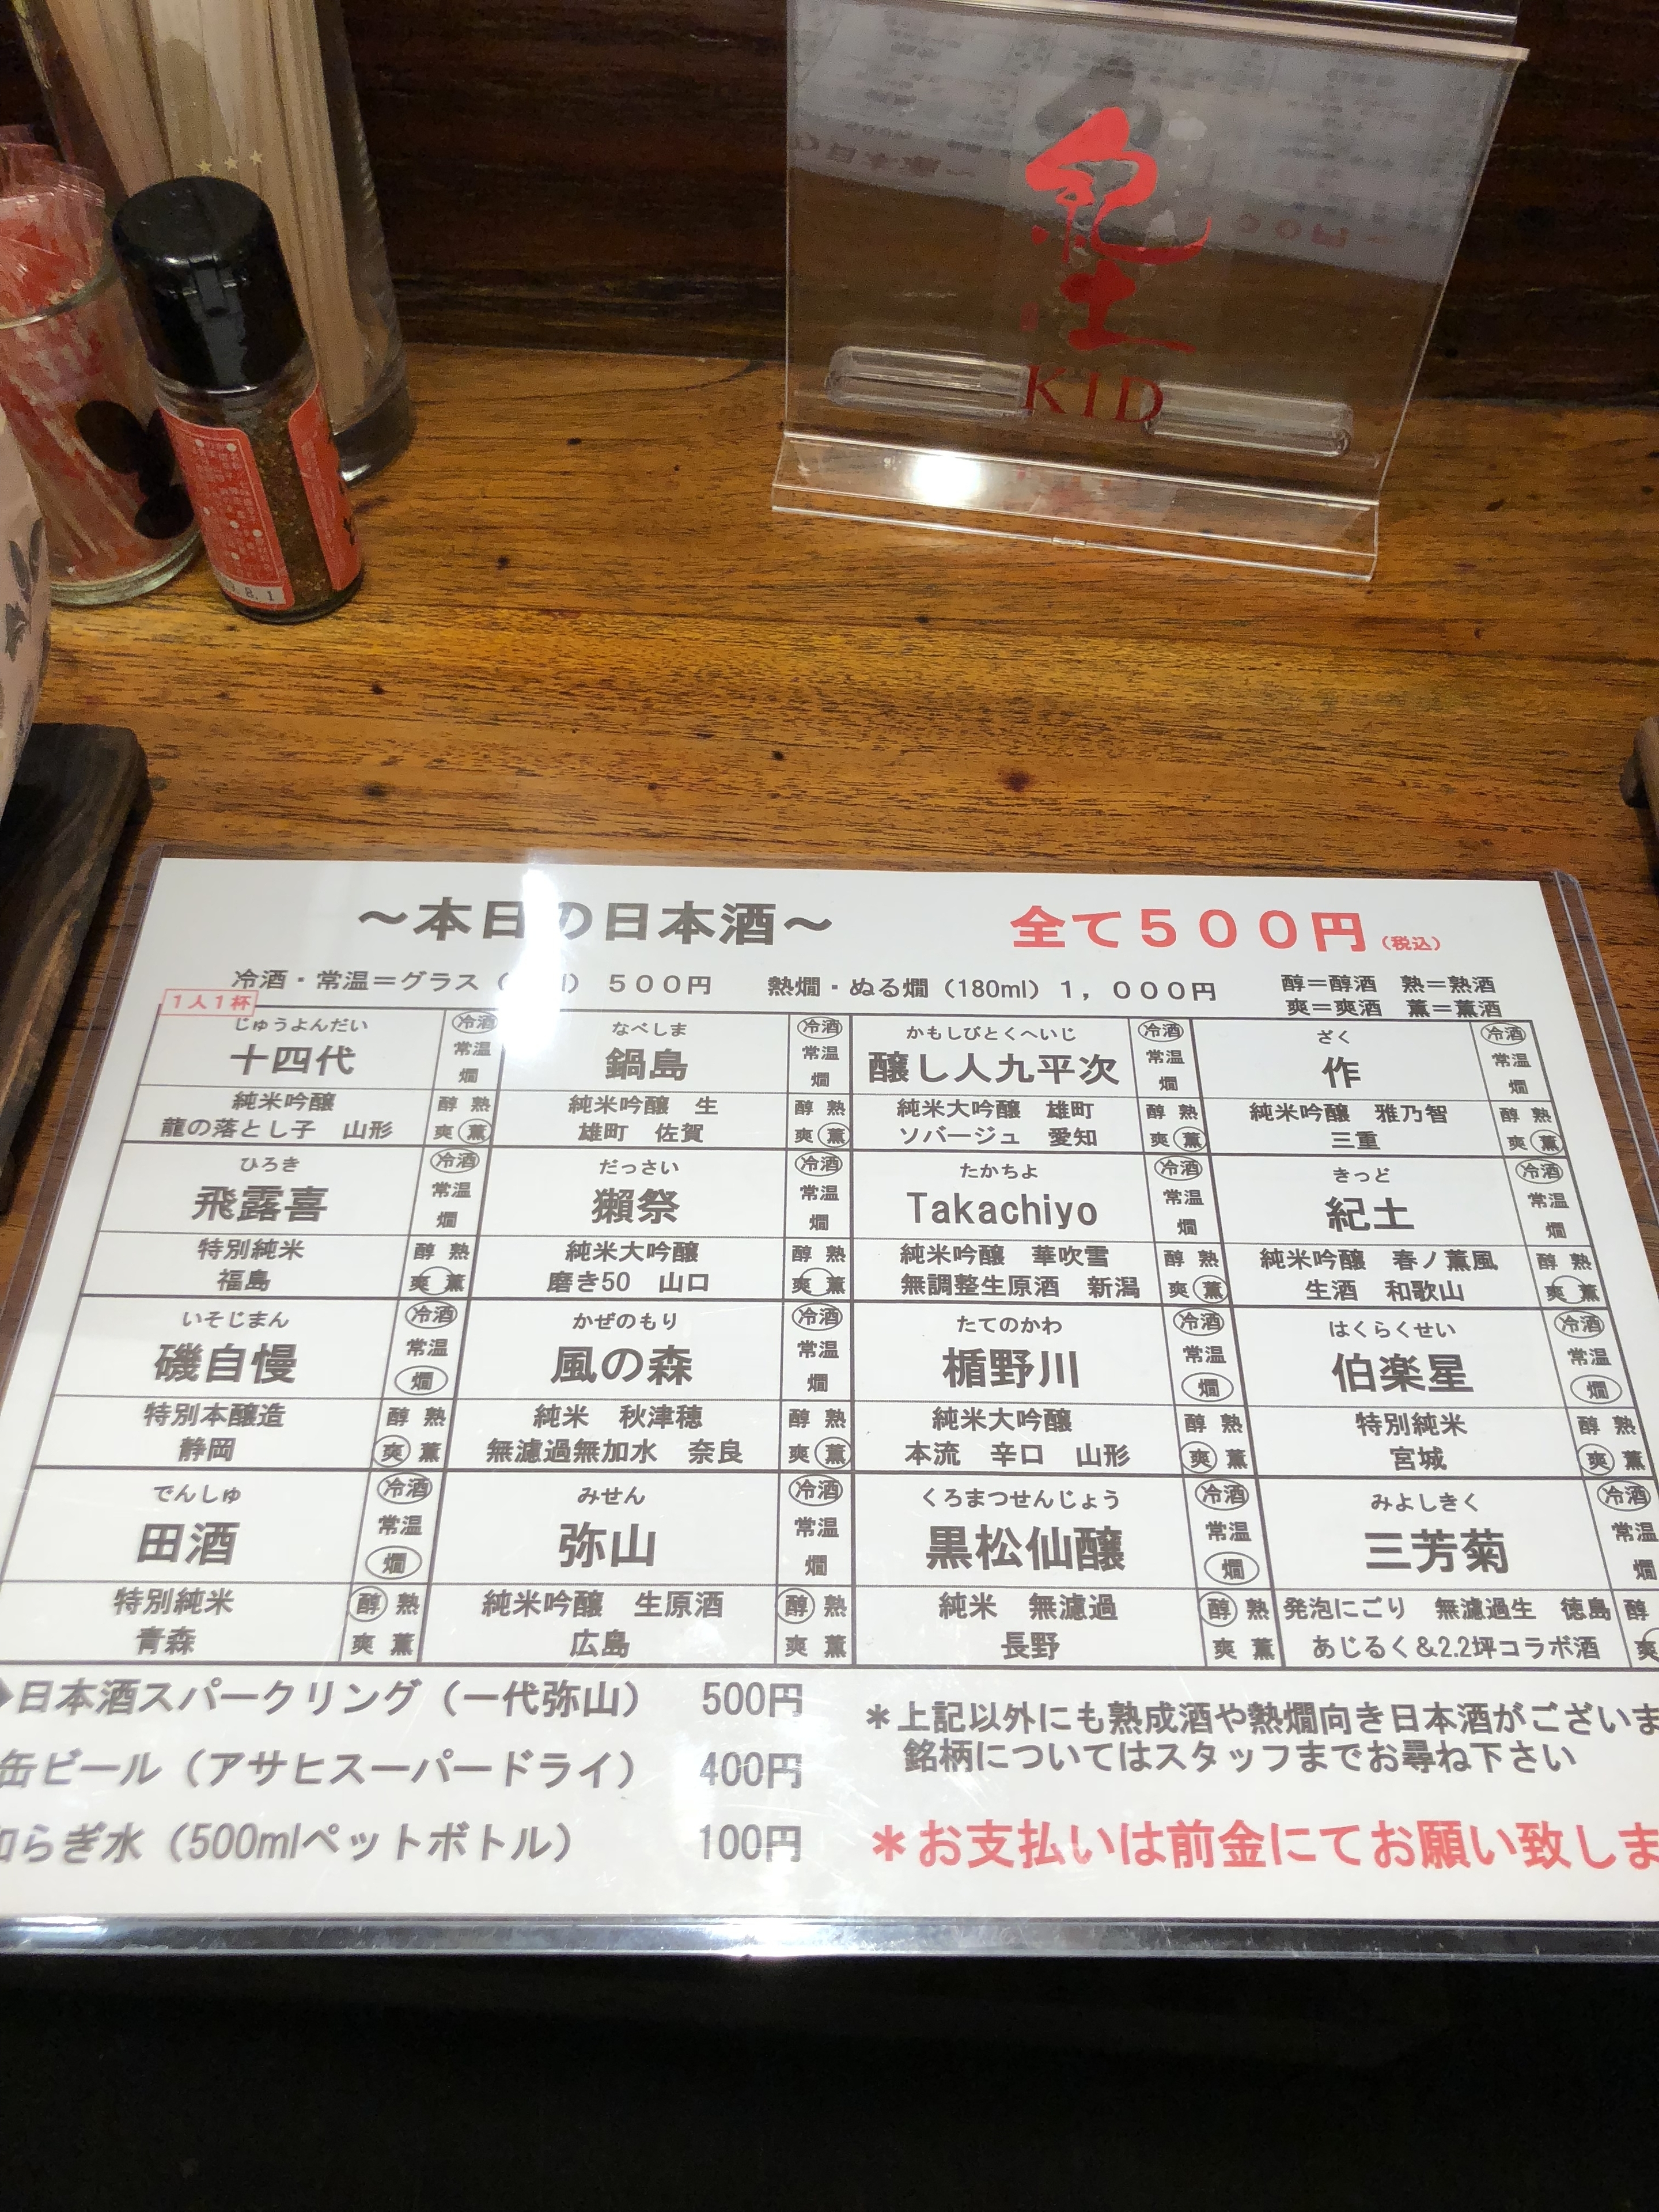 紀土
KID
8.1
～本日の日本酒～ 全て500円（税込）
冷酒・常温＝グラス 500円 熱燗・ぬる燗（180ml）1，000円 醇＝醇酒 熟＝熟酒
爽＝爽酒 薫＝薫酒
1人1杯
じゅうよんだい 冷酒 なべしま 冷酒 かもしびとくへいじ 冷酒 ざく 冷酒
十四代 常温 鍋島 常温 醸し人九平次 常温 作 常温
燗 燗 燗 燗
純米吟醸 醇 熟 純米吟醸 生 醇 熟 純米大吟醸 雄町 醇 熟 純米吟醸 雅乃智 醇 熟
龍の落とし子 山形 爽 薫 雄町 佐賀 爽 薫 ソバージュ 愛知 爽 薫 三重 爽 薫
ひろき 冷酒 だっさい 冷酒 たかちよ 冷酒 きっど 冷酒
飛露喜 常温 獺祭 常温 Takachiyo 常温 紀土 常温
燗 燗 燗 燗
特別純米 醇 熟 純米大吟醸 醇 熟 純米吟醸 華吹雪 醇 熟 純米吟醸 春ノ薫風 醇 熟
福島 爽 薫 磨き50 山口 爽 薫 無調整生原酒 新潟 爽 薫 生酒 和歌山 爽 薫
いそじまん 冷酒 かぜのもり 冷酒 たてのかわ 冷酒 はくらくせい 冷酒
磯自慢 常温 風の森 常温 楯野川 常温 伯楽星 常温
燗 燗 燗 燗
特別本醸造 醇 熟 純米 秋津穂 醇 熟 純米大吟醸 醇 熟 特別純米 醇 熟
静岡 爽 薫 無濾過無加水 奈良 爽 薫 本流 辛口 山形 爽 薫 宮城 爽 薫
でんしゅ 冷酒 みせん 冷酒 くろまつせんじょう 冷酒 みよしきく 冷酒
田酒 常温 弥山 常温 黒松仙醸 常温 三芳菊 常温
燗 燗 燗 燗
特別純米 醇 熟 純米吟醸 生原酒 醇 熟 純米 無濾過 醇 熟 発泡にごり 無濾過生 徳島 醇
青森 爽 薫 広島 爽 薫 長野 爽 薫 あじるく＆2.2坪コラボ酒 爽
◆日本酒スパークリング（一代弥山） 500円
缶ビール（アサヒスーパードライ） 400円
らぎ水（500mlペットボトル） 100円
＊上記以外にも熟成酒や熱燗向き日本酒がございま
銘柄についてはスタッフまでお尋ね下さい
＊お支払いは前金にてお願い致しま